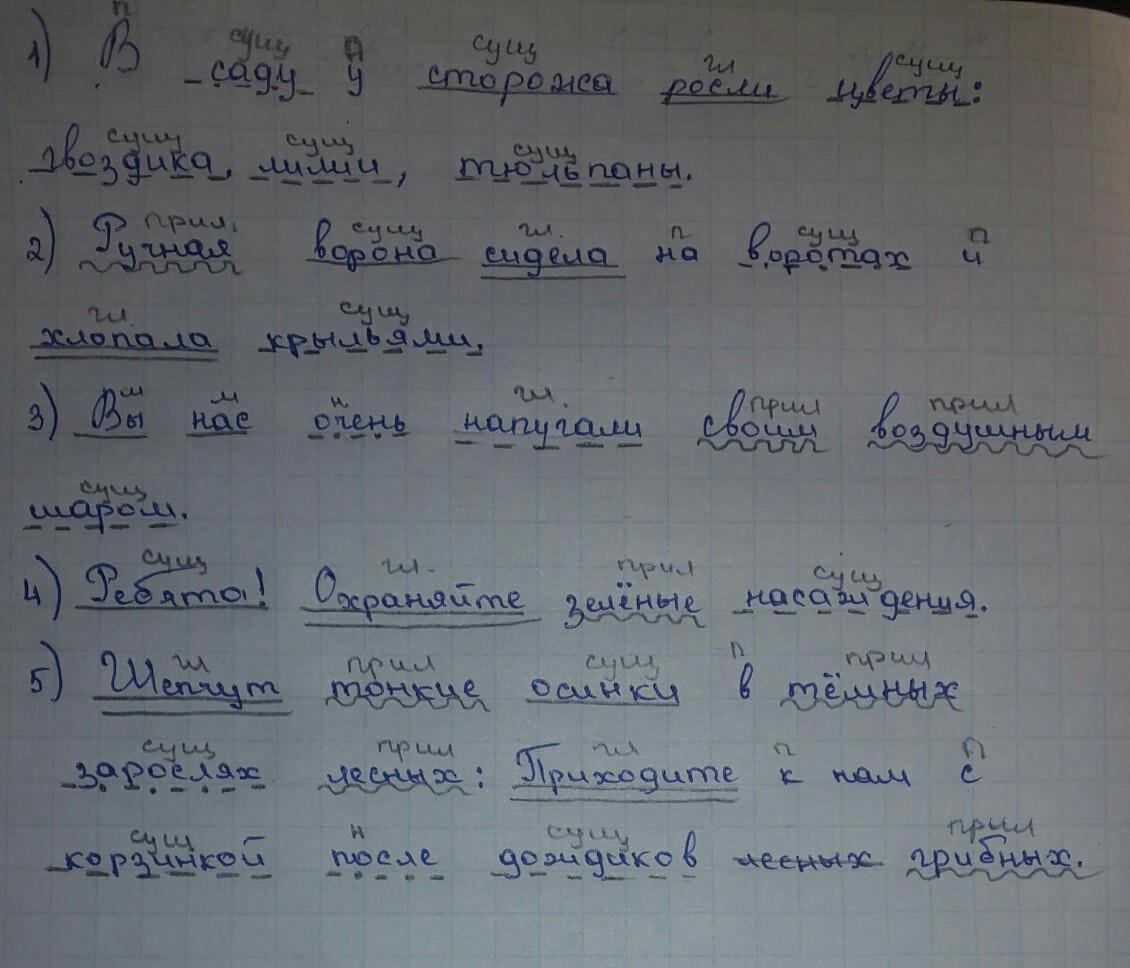 п сущ п сущ гл сущ
1) В саду у сторожа росли цветы:
сущ сущ сущ
гвоздика, лилии, тюльпаны.
прил. сущ гл. п сущ п
2) Ручная ворона сидела на воротах и
гл. сущ
хлопала крыльями.
м м н гл. прил прил
3) Вы нас очень напугали своим воздушным
сущ
шаром.
сущ гл. прил сущ
4) Ребята! Охраняйте зелёные насаждения.
гл прил сущ п прил
5) Шепчут тонкие осинки в тёмных
сущ прил гл п п
зарослях лесных: Приходите к нам с
сущ н сущ прил
корзинкой после дождиков лесных грибных.